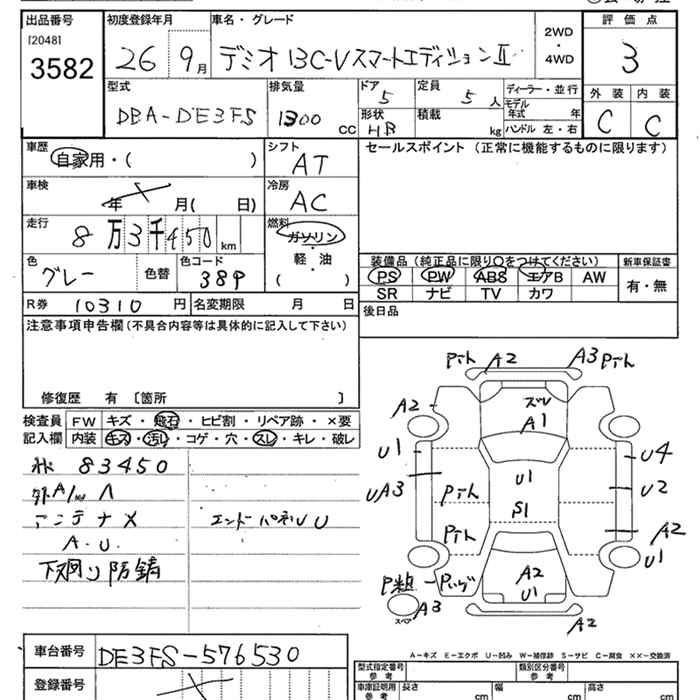 出品番号 初度登録年月 車名・グレード 2WD・4WD 評価点
[2048]
3582 26 9月 デミオ 13C-V スマートエディション II 3
型式 排気量 ドア 5 定員 5人 ディーラー・並行 外装 内装
モデル年式 年
DBA-DE3FS 1300 CC 形状 HB 積載 kg ハンドル 左・右 C C
車歴 自家用・( ) シフト AT セールスポイント (正常に機能するものに限ります)
車検 年 月( 日) 冷房 AC
走行 8万3千450 km 燃料 ガソリン・軽油・( )
色 グレー 色替 色コード 38P
装備品 (純正品に限り○をつけてください) 新車保証書
PS PW ABS エアB AW 有・無
SR ナビ TV カワ
R券 10310円 名変期限 月 日 後日品
注意事項申告欄 (不具合内容等は具体的に記入して下さい)
修復歴 有 〔箇所 〕
検査員 FW キズ・飛石・ヒビ割・リペア跡・×要
記入欄 内装 キズ・汚レ・コゲ・穴・スレ・キレ・破レ
83450
アンテナ× エンドパネルU
A.U.
下廻り防錆
Pテト A2 A3 Pテト
ズレ
A2 A1
U1 U4
UA3 Pテト U1 U2
S1
Pテト A2
U1
A2
U1
スペア A3 A2
A-キズ E-エクボ U-凹み W-補修跡 S-サビ C-腐食 ××-交換済
車台番号 DE3FS-576530
登録番号
型式指定番号 参考 類別区分番号 参考
車庫証明用 参考 長さ cm 幅 cm 高さ cm